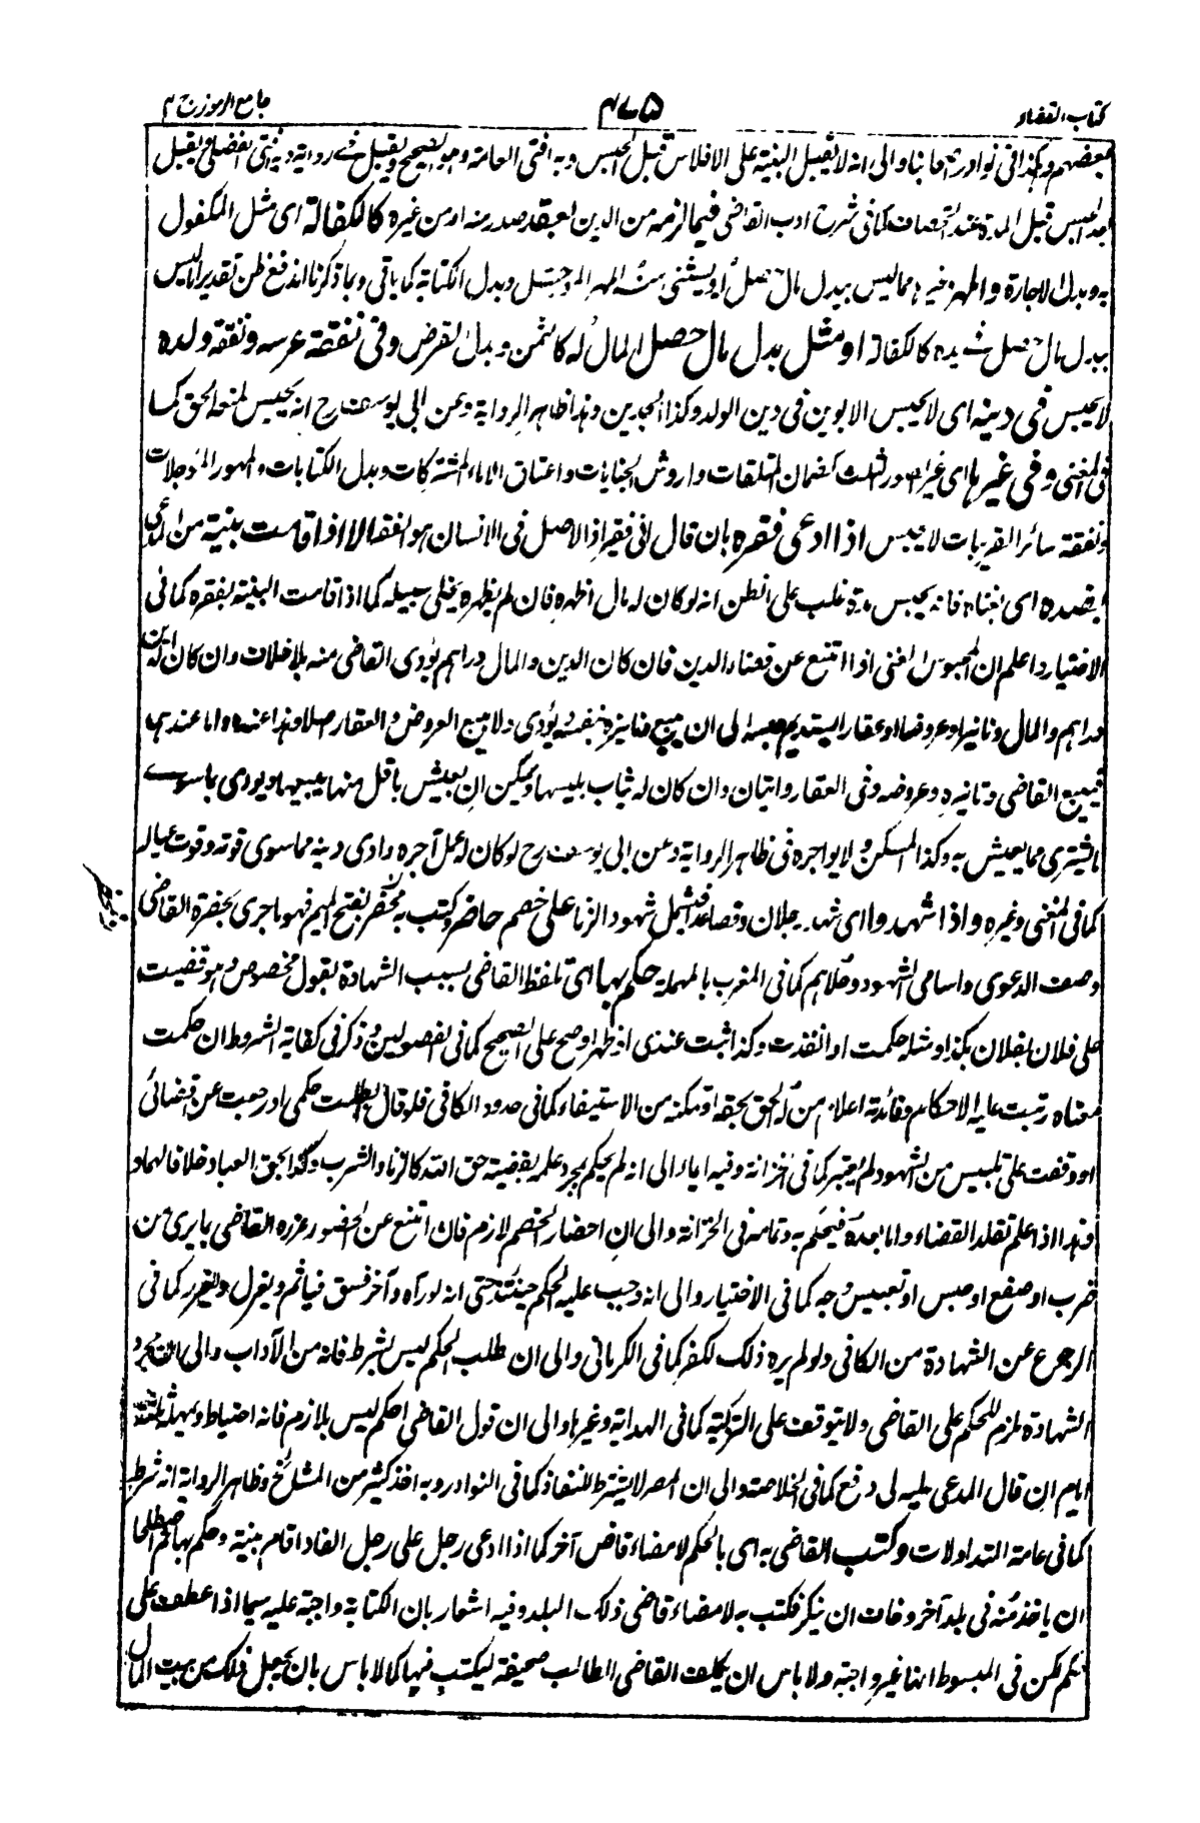 كتاب القضاء ٤٧٥ جامع الرموز ج ٢
بعضهم وهكذا فى نوادر هشام وايانا والى انه لا تقبل البينة على الافلاس قبل الحبس وبه افتى العامة وهو الصحيح ويقبل فى رواية وبه افتى الفضلى ويقبل
بعد الحبس قبل المدة عند الخصاف كما فى شرح ادب القاضى فيما لزمه من الدين بعقد صدر منه او من غيره كالكفالة اى مثل المكفول
به وبدل الاجارة والمهر وغيرها مما ليس ببدل مال حصل له ويستثنى منه المهر المؤجل وبدل الكتابة كما ياتى وبما ذكرنا اندفع ظن تقدير ما ليس
ببدل مال حصل بيده كالكفالة او مثل بدل مال حصل المال له كالثمن وبدل القرض وفى نفقة عرسه ونفقة ولده
لا يحبس فى دينه اى لا يحبس الابوين فى دين الولد وكذا الجدين وهذا ظاهر الرواية وعن ابى يوسف رح انه يحبس لمنعه الحق كما
فى المغنى وفى غيرها اى غير هذه الثلث كضمان المتلفات واروش الجنايات واعتاق الاماء المشتركات وبدل الكتابات والمهور المؤجلات
ونفقة سائر القريبات لا يحبس اذا ادعى فقره بان قال انى فقير اذ الاصل فى الانسان هو الفقر الا اذا قامت بينة من المدعى
بضده اى بغناه فانه يحبس مدة غلب على الظن انه لو كان له مال اظهره فان لم يظهره يخلى سبيله كما اذا قامت البينة بفقره كما فى
الاختيار واعلم ان المحبوس الغنى اذا امتنع عن قضاء الدين فان كان الدين والمال دراهم يؤدى القاضى منه بلا خلاف وان كان له الدين
دراهم والمال دنانير او عروضا او عقارا يستديم حبسه الى ان يبيع دنانيره بنفسه ويؤدى ولا يبيع العروض والعقار اصلا وهذا عنده واما عندهما
فيبيع القاضى دنانيره وعروضه وفى العقار روايتان وان كان له ثياب يلبسها ويمكن ان يعيش باقل منها يبيعها ويؤدى بما سوى
ما يشترى مما يعيش به وكذا المسكن ولا يواجره فى ظاهر الرواية وعن ابى يوسف رح لو كان له عمل آجره وادى دينه مما سوى قوته وقوت عياله
كما فى المغنى وغيره واذا شهدوا اى شهد رجلان فصاعدا فيشمل شهود الزنا على خصم حاضر وكتب به محضر بفتح الميم فهو ما جرى بحضرة القاضى
وصف الدعوى واسامى الشهود وحلاهم كما فى المغرب بالمهملة حكم بها اى تلفظ القاضى بسبب الشهادة بقول مخصوص وهو قضيت
على فلان لفلان بكذا ومثله حكمت او انفذت وكذا ثبت عندى او ظهر او صح على الصحيح كما فى الفصولين وذكر فى كفاية الشروط ان حكمت
معناه رتبت عليه الاحكام وفائدته اعلام من له الحق بحقه او تمكنه من الاستيفاء كما فى حدود الكافى فلو قال ابطلت حكمى او رجعت عن قضائى
او وقفت على تلبيس من الشهود لم يعتبر كما فى الخزانة وفيه ايماء الى انه لم يحكم بمجرد علمه بقضية حق الله كالزنا والشرب وكذا بحق العباد خلافا لهما و
هذا اذا علم قبل تقلد القضاء واما بعده فيحكم به وتمامه فى الخزانة والى ان احضار الخصم لازم فان امتنع عن الحضور عزره القاضى بما يرى من
ضرب او صفع او حبس او تعبيس وجه كما فى الاختيار والى انه وجب عليه الحكم حينئذ حتى انه لو رآه وآخر فسق فياثم ويعزل ويعزر كما فى
الرجوع عن الشهادة من الكافى ولو لم يره ذلك لكفر كما فى الكرمانى والى ان طلب الحكم ليس بشرط فانه من الآداب والى ان مجرد
الشهادة ملزم للحكم على القاضى ولا يتوقف على التزكية كما فى الهداية وغيرها والى ان قول القاضى احكم ليس بلازم فانه احتياط ويمهل ثلثة
ايام ان قال المدعى عليه لى دفع كما فى الخلاصة والى ان المصر لا يشترط للنفاذ كما فى النوادر وبه اخذ كثير من المشايخ وظاهر الرواية انه شرط
كما فى عامة المتداولات وكتب القاضى به اى بالحكم لامضاء قاض آخر كما اذا ادعى رجل على رجل الفا واقام بينة وحكم بها ثم اصطلحا
ان ياخذ منه فى بلد آخر وخاف ان ينكر فكتب به لامضاء قاضى ذلك البلد وفيه اشعار بان الكتابة واجبة عليه سيما اذا عطف على
حكم لكن فى المبسوط انها غير واجبة ولا باس ان يكلف القاضى الطالب صحيفة ليكتب فيها كما لا باس بان يجعل ذلك من بيت المال